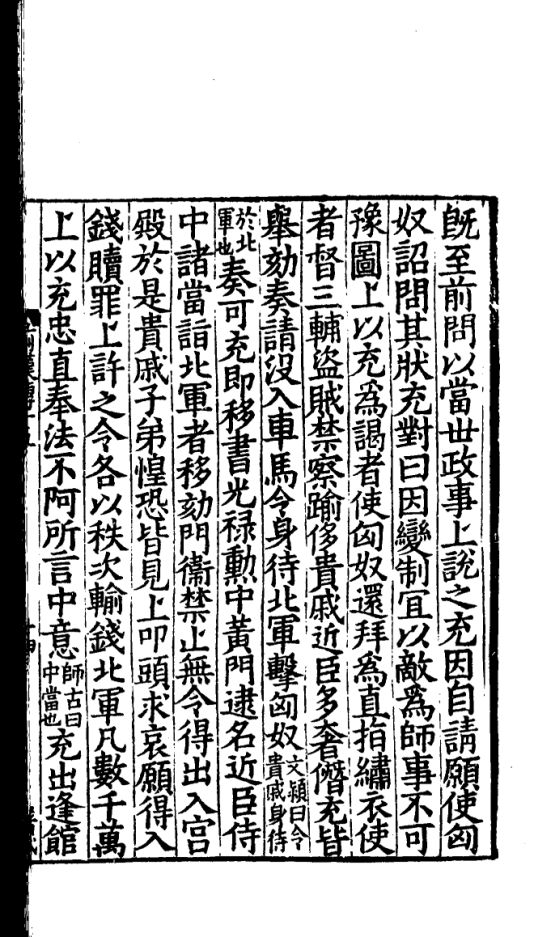 旣至前問以當丗政事上說之充因自請願使匈
奴詔問其狀充對曰因變制冝以敵爲師事不可
豫圖上以充爲謁者使匈奴還拜爲直指繡衣使
者督三輔盜賊禁察踰侈貴戚近臣多奢僭充皆
舉劾奏請没入車馬令身待北軍擊匈奴文穎曰令貴戚身待
於北軍也奏可充即移書光禄勲中黃門逮名近臣侍
中諸當詣北軍者移劾門衞禁止無令得出入宫
殿於是貴戚子弟惶恐皆見上叩頭求哀願得入
錢贖罪上許之令各以秩次輸錢北軍凡數千萬
上以充忠直奉法不阿所言中意師古曰中當也充出逢館